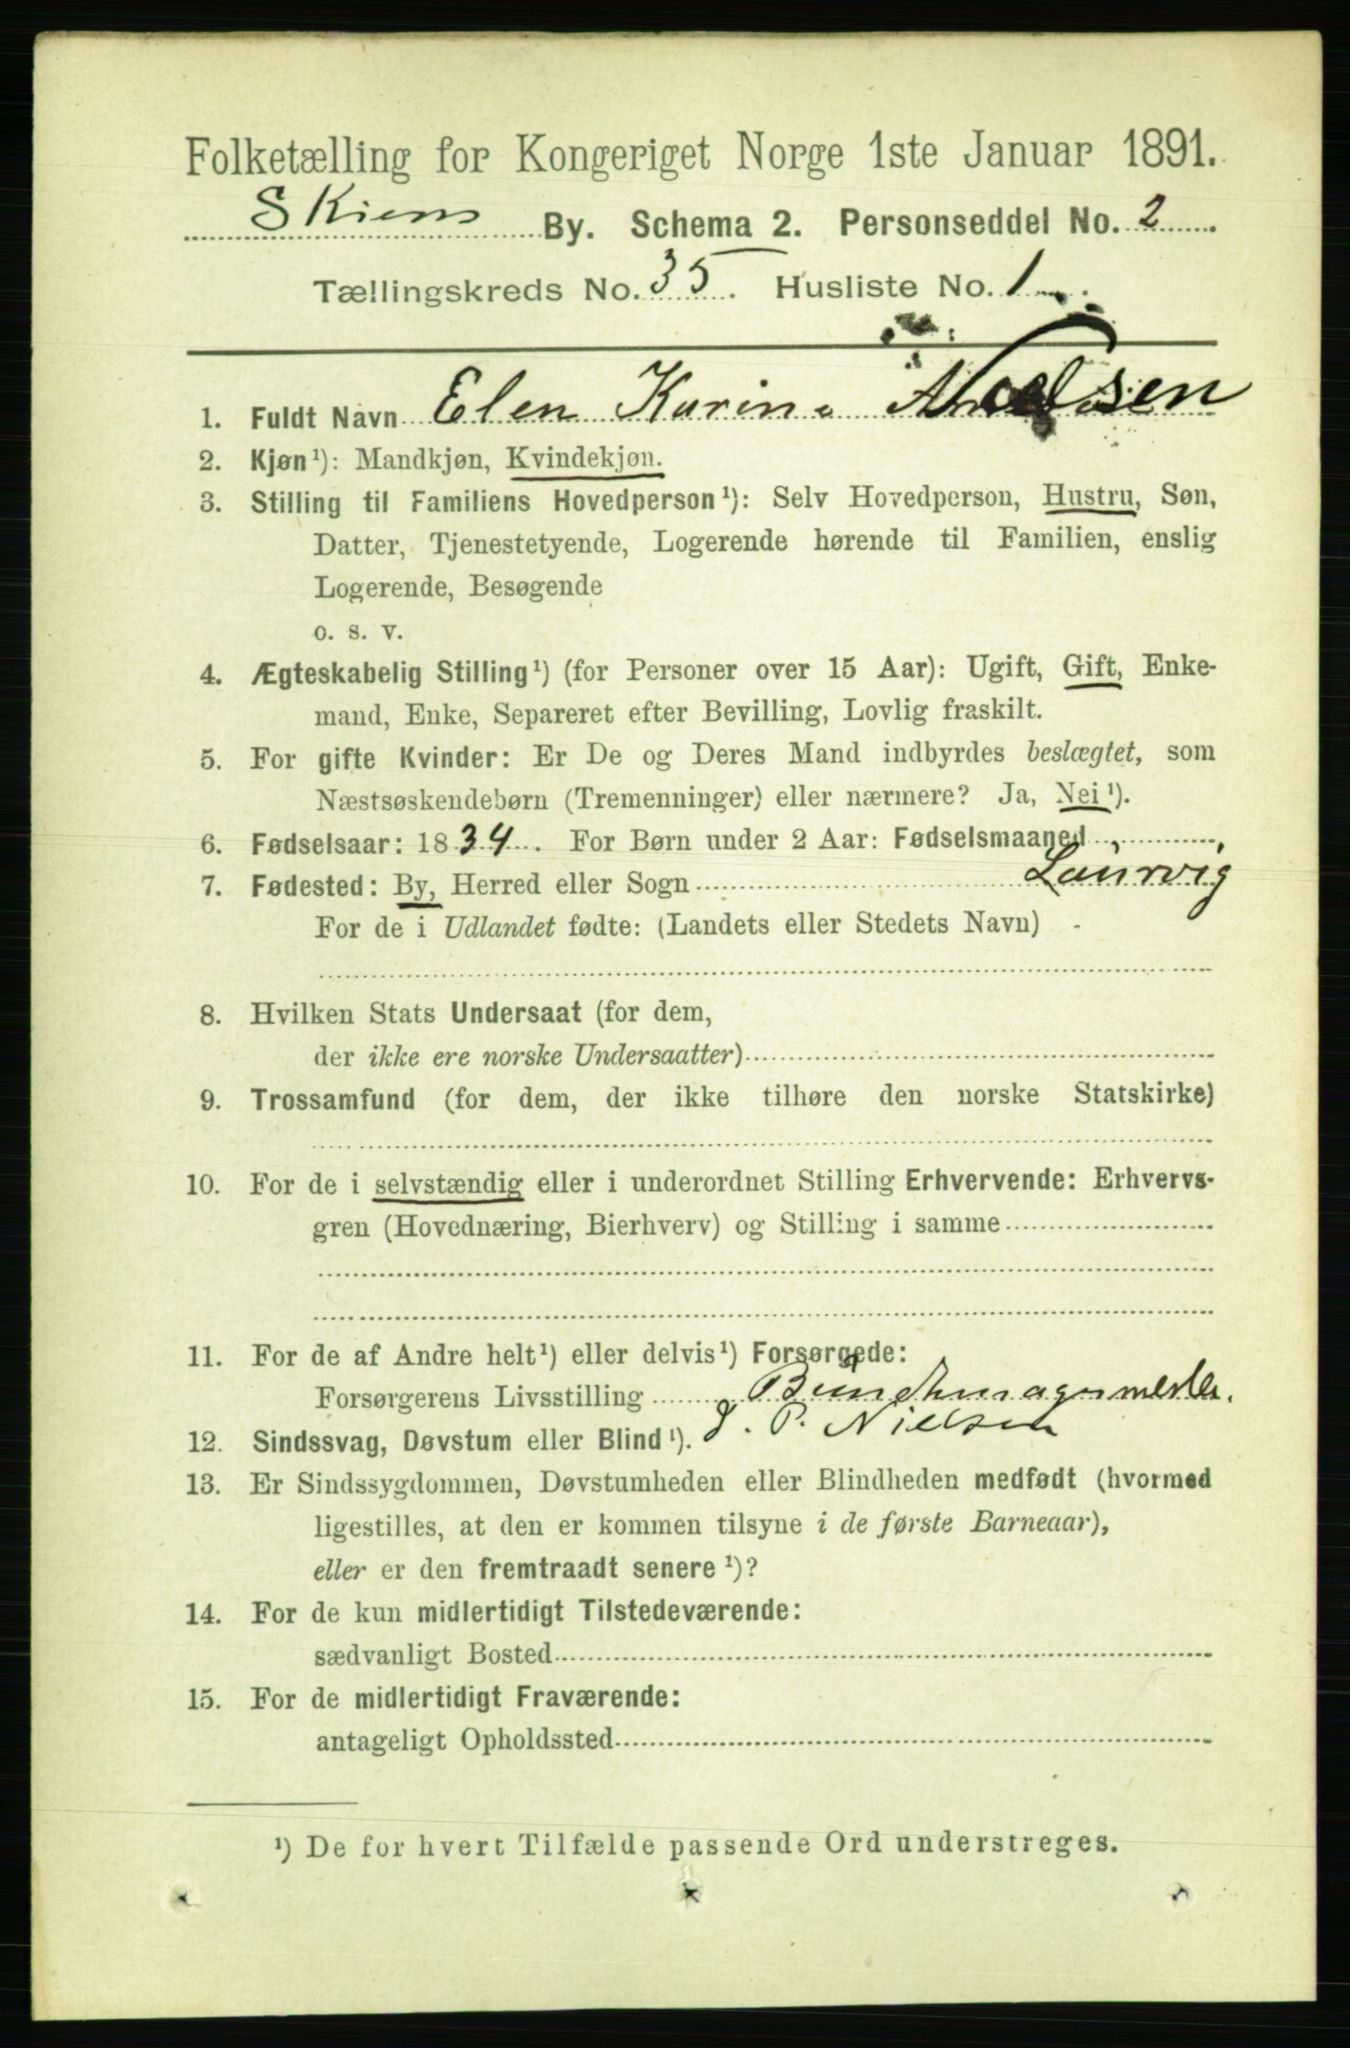 Folketælling for Kongeriget Norge 1ste Januar 1891.
Skiens By. Schema 2. Personseddel No. 2
Tællingskreds No. 35. Husliste No. 1
1. Fuldt Navn Elen Karine Nielsen
2. Kjøn¹): Mandkjøn, Kvindekjøn.
3. Stilling til Familiens Hovedperson¹): Selv Hovedperson, Hustru, Søn,
Datter, Tjenestetyende, Logerende hørende til Familien, enslig
Logerende, Besøgende
o. s. v.
4. Ægteskabelig Stilling¹) (for Personer over 15 Aar): Ugift, Gift, Enke-
mand, Enke, Separeret efter Bevilling, Lovlig fraskilt.
5. For gifte Kvinder: Er De og Deres Mand indbyrdes beslægtet, som
Næstsøskendebørn (Tremenninger) eller nærmere? Ja, Nei¹).
6. Fødselsaar: 1834. For Børn under 2 Aar: Fødselsmaaned
7. Fødested: By, Herred eller Sogn Laurvig
For de i Udlandet fødte: (Landets eller Stedets Navn)
8. Hvilken Stats Undersaat (for dem,
der ikke ere norske Undersaatter)
9. Trossamfund (for dem, der ikke tilhøre den norske Statskirke)
10. For de i selvstændig eller i underordnet Stilling Erhvervende: Erhvervs-
gren (Hovednæring, Bierhverv) og Stilling i samme
11. For de af Andre helt¹) eller delvis¹) Forsørgede:
Forsørgerens Livsstilling Buntmagermester.
J. P. Nielsen
12. Sindssvag, Døvstum eller Blind¹).
13. Er Sindssygdommen, Døvstumheden eller Blindheden medfødt (hvormed
ligestilles, at den er kommen tilsyne i de første Barneaar),
eller er den fremtraadt senere¹)?
14. For de kun midlertidigt Tilstedeværende:
sædvanligt Bosted
15. For de midlertidigt Fraværende:
antageligt Opholdssted
¹) De for hvert Tilfælde passende Ord understreges.